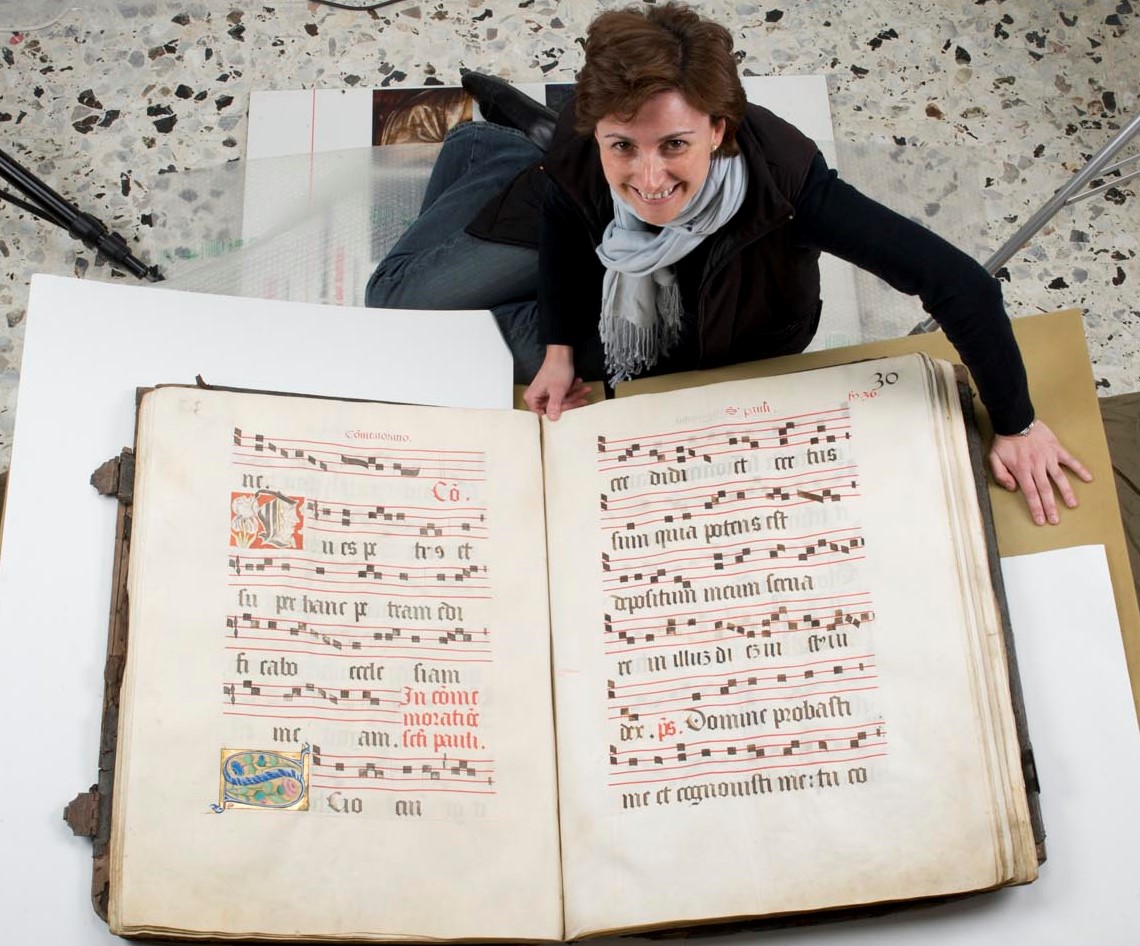 ne. Cō.
u es pe trꝰ et
su per hanc pe tram edi
fi cabo eccle siam
In cōme
moratiōe
me am. scti pauli.
Scio cui
30
S. pauli.
fo. 36.
cre didi et cer tus
sum quia potens est
depositum meum serua
re in illuʒ di eʒ iu stus iu
dex . p̄s. Domine probasti
me et cognouisti me: tu co